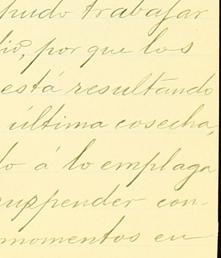 pudo trabajar
dio, por que los
está resultando
última cosecha,
do á lo emplaga
suspender con-
momentos en